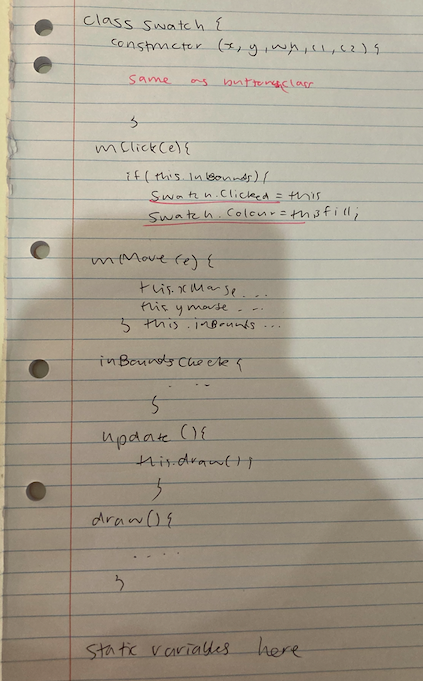 class Swatch {
constructor (x, y, w, h, c1, c2) {
same as buttons class
}
mClick(e){
if (this.inBounds){
Swatch.Clicked = this
Swatch.Colour = this fill;
mMove (e) {
this.xMouse...
this ymouse ...
} this.inBounds...
inBoundsCheck {
...
}
update (){
this.draw();
}
draw(){
....
}
static variables here